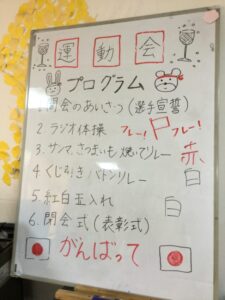 運動会
プログラム
1.開会のあいさつ(選手宣誓)
2.ラジオ体操
フレー!フレー!
3.サンマ、さつまいも焼いてリレー
赤
4.くじ引きバトンリレー
白
5.紅白玉入れ
白
6.閉会式(表彰式)
がんばって